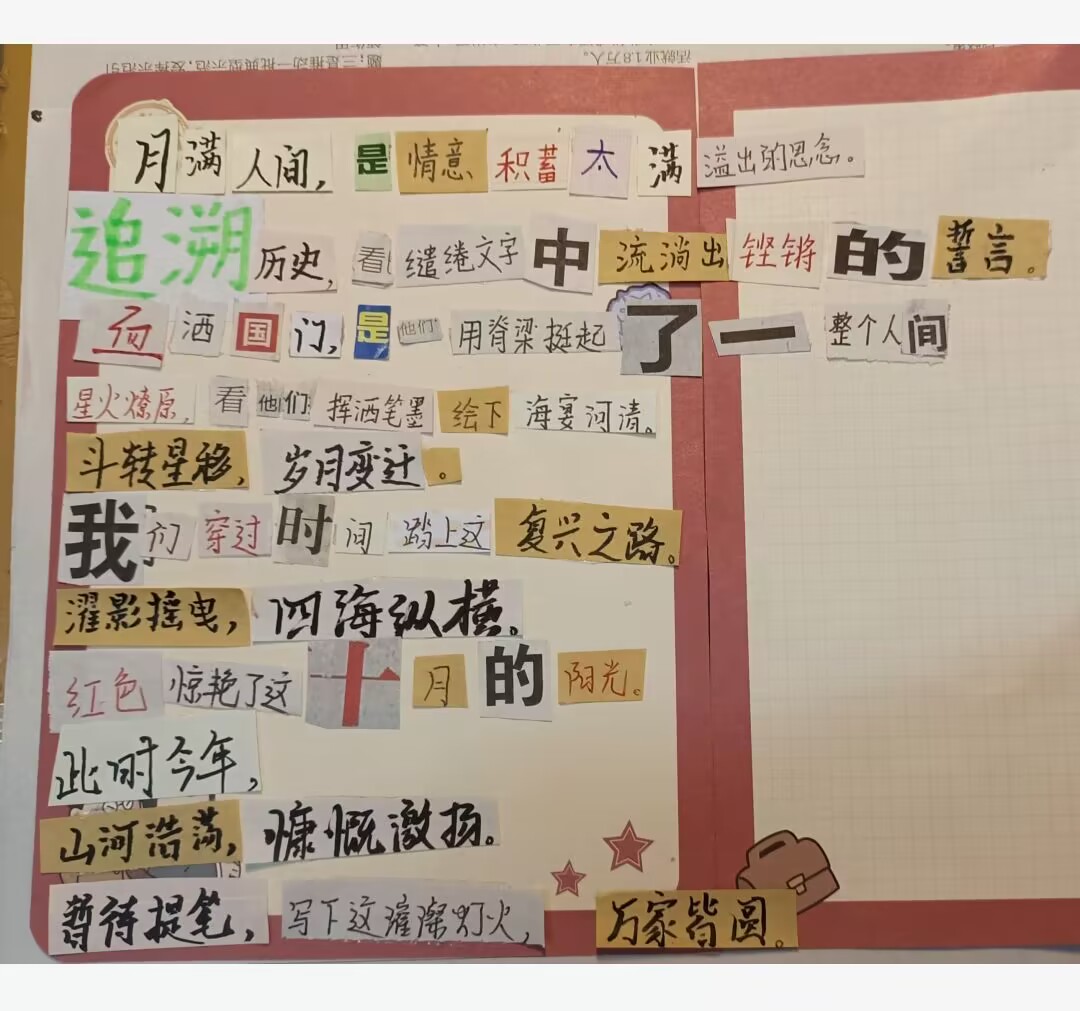 月满人间,是情意积蓄太满溢出的思念。
追溯历史,看缱绻文字中流淌出铿锵的誓言。
血洒国门,是他们用脊梁挺起了一整个人间
星火燎原,看他们挥洒笔墨绘下海宴河清。
斗转星移,岁月变迁。
我们穿过时间踏上这复兴之路。
濯影摇曳,四海纵横。
红色惊艳了这十月的阳光。
此时今年,
山河浩荡,慷慨激扬。
暂待提笔,写下这璀璨灯火,万家皆圆。